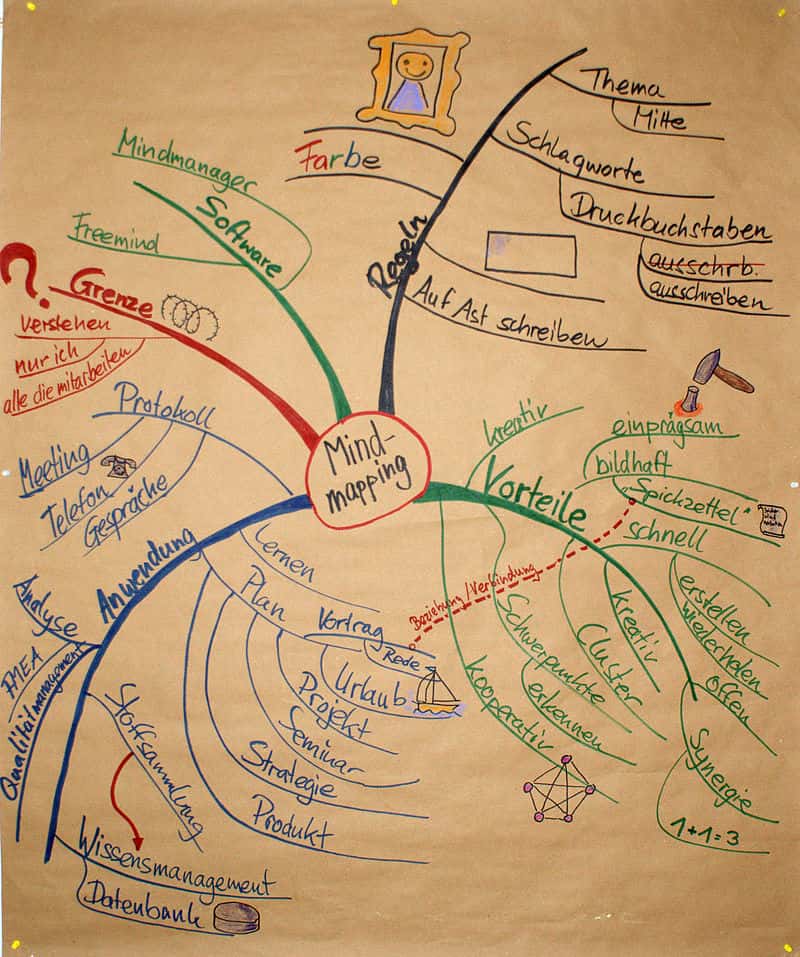 Mind-
mapping
Regeln
Thema
Mitte
Schlagworte
Druckbuchstaben
ausschrb.
ausschreiben
Farbe
Auf Ast schreiben
Vorteile
kreativ
einprägsam
bildhaft
"Spickzettel"
schnell
erstellen
wiederholen
offen
kreativ
Cluster
Schwerpunkte
erkennen
kooperativ
Synergie
1+1=3
Beziehung/Verbindung
Anwendung
Protokoll
Meeting
Telefon
Gespräche
Lernen
Plan
Vortrag
Rede
Urlaub
Projekt
Seminar
Strategie
Produkt
Analyse
FMEA
Qualitätmanagement
Stoffsammlung
Wissensmanagement
Datenbank
Grenze
?
verstehen
nur ich
alle die mitarbeiten
Software
Mindmanager
Freemind